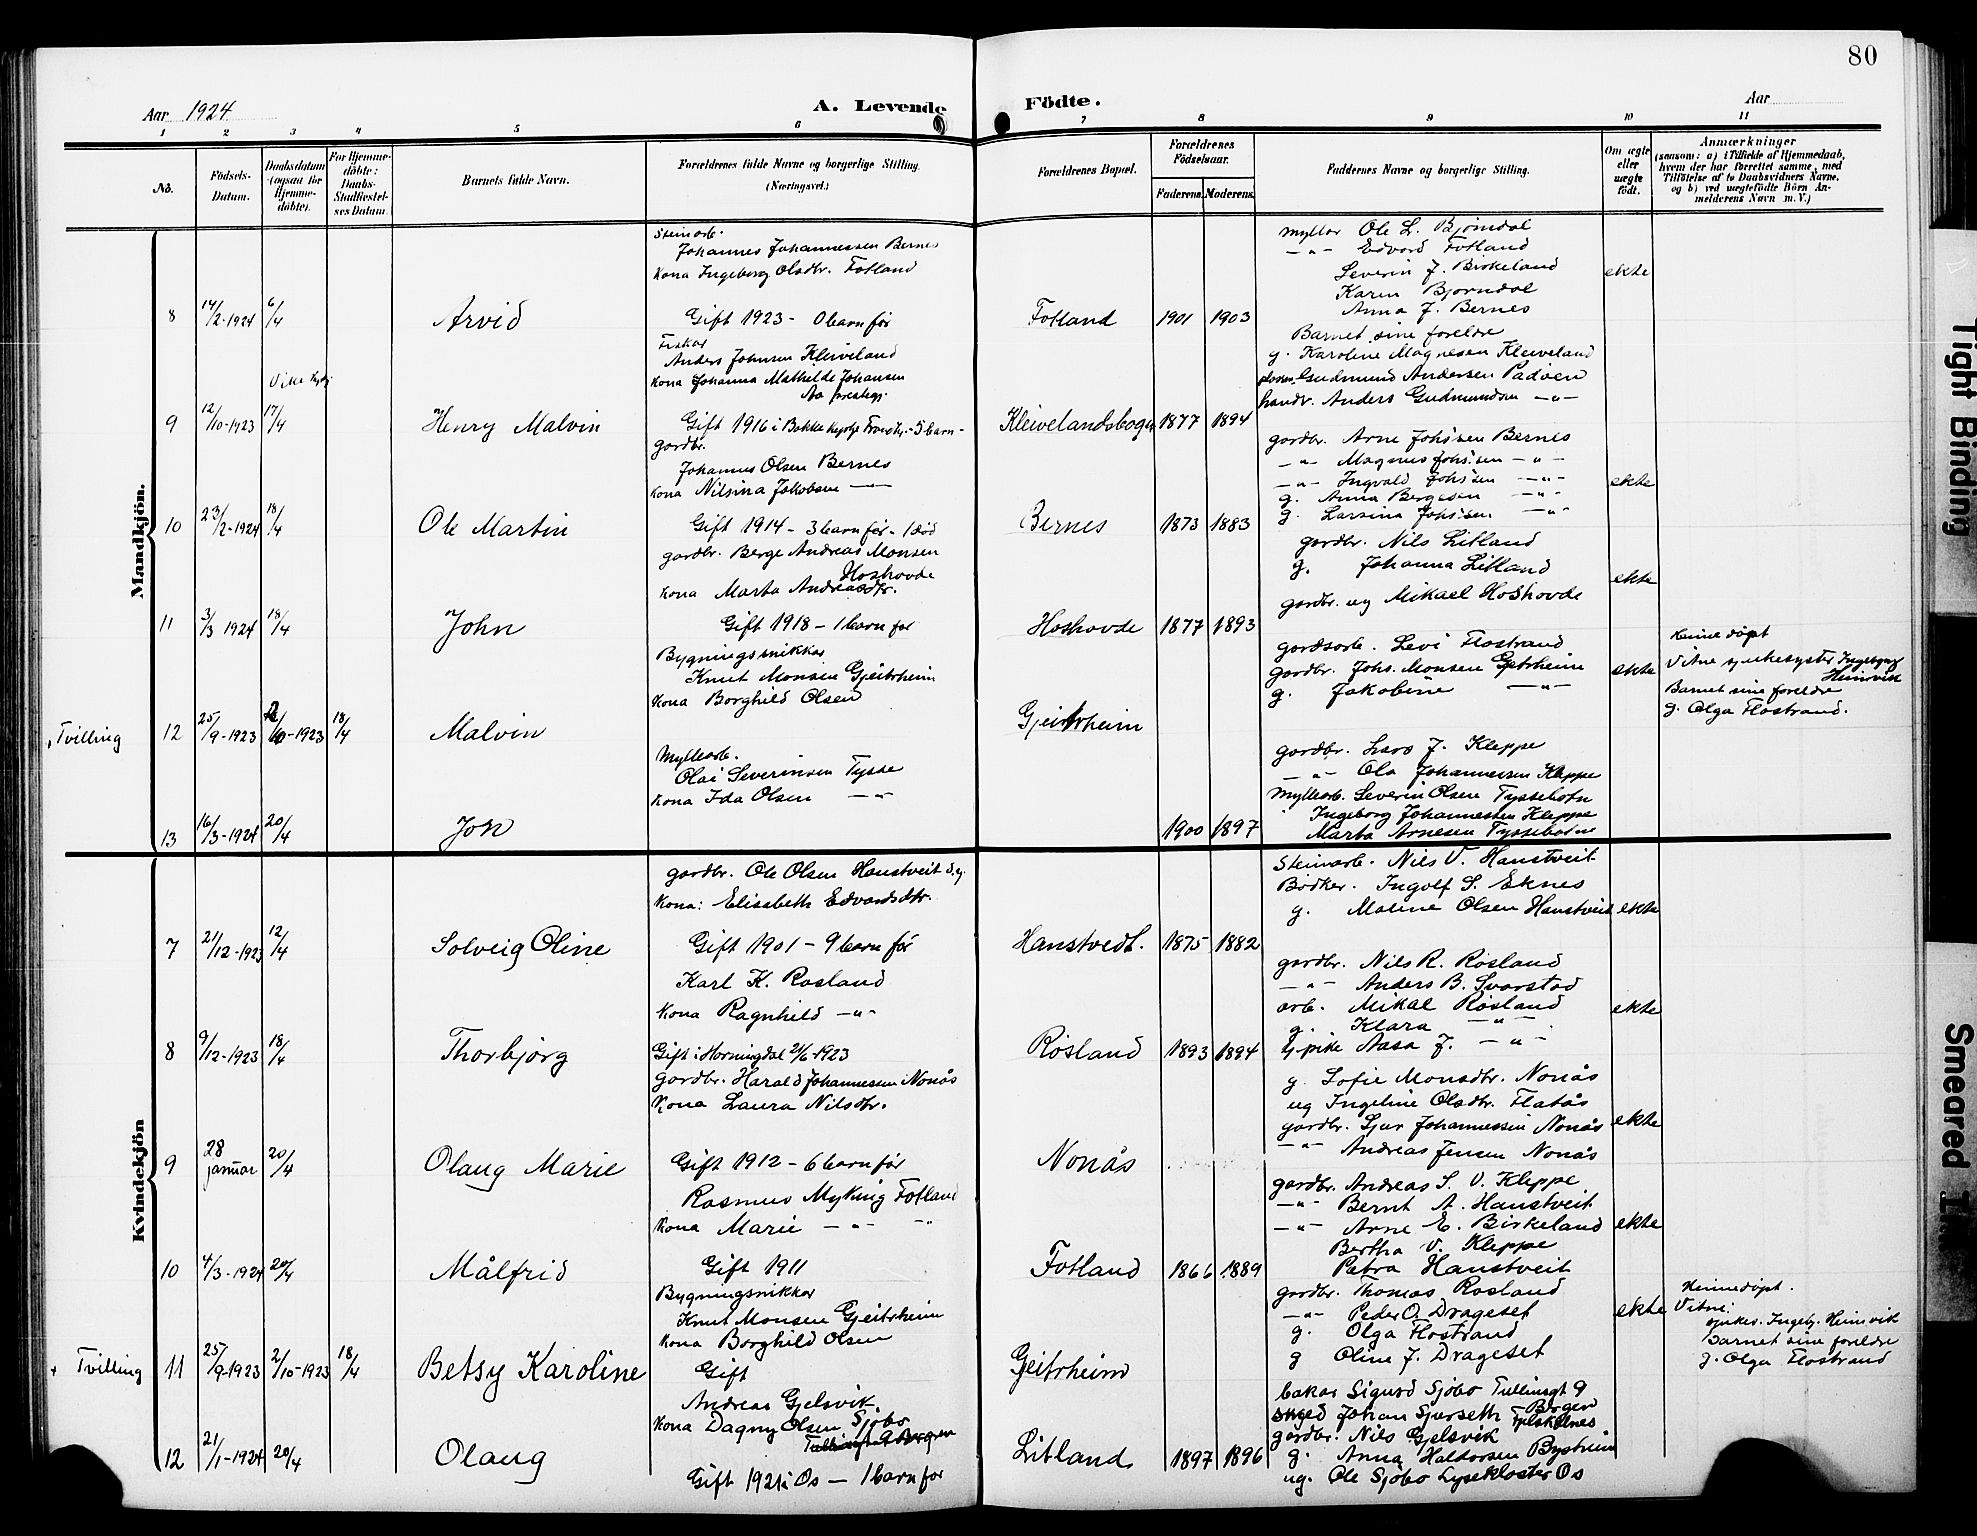 80
Aar 1924
A. Levende Födte.
Aar
1 2 3 4 5 6 7 8 9 10 11
No.
Födsels-Datum.
Daabsdatum (ogsaa for Hjemme-döbte).
For Hjemme-döbte: Daabs-Stadfæstel-ses Datum.
Barnets fulde Navn.
Forældrenes fulde Navne og borgerlige Stilling.
(Næringsvei.)
Forældrenes Bopæl.
Forældrenes Födselsaar.
Faderens. Moderens.
Faddernes Navne og borgerlige Stilling.
Om ægte eller uægte födt.
Anmærkninger
(saasom: a) i Tilfælde af Hjemmedaab, hvem der har forrettet samme, med Tilföielse af to Daabsvidners Navne, og b) ved uægtefödte Börn An-melderens Navn m. V.)
Mandkjön.
8 14/2-1924 6/4 Arvid
Steinarb.
Johannes Johannessen Bernes
Kona Ingeborg Olsdtr. Fotland
Gift 1923 - 0 barn før
Fotland 1901 1903
myllar Ole L. Bjørndal
-"- Edvard Fotland
Severin J. Birkeland
Karen Bjørndal
Anna J. Bernes
ekte
9 12/10-1923 17/4 Henry Malvin
Fiskar
Anders Johnsen Kleiveland
Kona Johanna Mathilde Johansen
Gift 1916 i Bakke - 5 barn -
Kleivelandsbogen 1877 1894
Barnet sine forelde
g. Karoline Magnesen Kleiveland
Gudmund Andersen Padøen
handr. Anders Gudmundsen -"-
10 23/2-1924 18/4 Ole Martin
gardbr.
Johannes Olsen Bernes
Kona Nilsina Jakobsen -"-
Gift 1914 - 3 barn før - 1 død
Bernes 1873 1883
gardbr. Arne Johs'sen Bernes
-"- Magnus Johs'sen -"-
-"- Ingvald Johs'sen -"-
g. Anna Bergesen -"-
g. Larsina Johs'sen -"-
ekte
11 3/3 1924 18/4 John
gardbr. Berge Andreas Monsen
Hoshovde
Kona Marta Andreasdtr.
Gift 1918 - 1 barn før
Hoshovde 1877 1893
gardbr. Nils Litland
g. Johanna Litland
gardbr. ug Mikael Hoshovde
ekte
Tvilling 12 25/9-1923 2/10-1923 18/4 Malvin
Bygningssnikkar
Knut Monsen Gjeitrheim
Kona Borghild Olsen
Gjeitrheim
gardsarb. Levi Flostrand
gardbr. Johs. Monsen Geitrheim
g. Jakobine -"-
ekte
Heime døpt
Vitne sjukesyster Ingebjørg
Heimvik
Barnet sine foreldre
g. Olga Flostrand.
13 16/3-1924 20/4 Jon
Myllearb.
Olai Severinsen Tysse
Kona Ida Olsen -"-
1900 1897
gardbr. Lars J. Kleppe
-"- Ola Johannessen Kleppe
Myllearb. Severin Olsen Tyssebotn
Ingeborg Johannessen Kleppe
Marta Arnesen Tyssebotn
Kvindekjön
7 21/12-1923 12/4 Solveig Oline
gardbr. Ole Olsen Hanstveit d.y.
Kona: Elisabeth Edvardsdtr.
Gift 1901 - 9 barn før
Hanstvedt. 1875 1882
Steinarb. Nils V. Hanstveit
Bødker. Ingolf S. Eknes
g. Maline Olsen Hanstveit
ekte
8 9/12-1923 18/4 Thorbjørg
Karl K. Røsland
Kona Ragnhild -"-
Gift i Horningdal 2/6-1923
Røsland 1893 1894
gardbr. Nils R. Røsland
-"- Anders B. Svarstad
arb. Mikal Røsland
g. Klara -"-
pike Aasa J. -"-
ekte
9 28 januar 20/4 Olaug Marie
gardbr. Harald Johannessen Nonås
Kona Laura Nilsdtr.
Gift 1912 - 6 barn før
Nonås
g. Sofie Monsdtr. Nonås
ug Ingeline Olsdtr. Flatås
gardbr. Sjur Johannessen Nonås
-"- Andreas Jensen Nonås
ekte
10 4/3-1924 20/4 Målfrid
Rasmus Myking Fotland
Kona Marie -"- -"-
Gift 1911
Fotland 1866 1889
gardbr. Andreas S. V. Kleppe
-"- Bernt A. Hanstveit
-"- Arne E. Birkeland
Bertha V. Kleppe
Petra Hanstveit
ekte
Tvilling 11 25/9-1923 2/10-1923 18/4 Betsy Karoline
Bygningsnikkar
Knut Monsen Gjeitrheim
Kona Borghild Olsen
Gift
Geitrheim
gardbr. Thomas Røsland
-"- Peder O. Drageset
g. Olga Flostrand
g Oline J. Drageset
ekte
Heimedøpt.
Vitne:
sjukes. Ingebj. Heimvik
Barnet sine foreldre
g. Olga Flostrand
12 21/1-1924 20/4 Olaug
Andreas Gjelsvik
Kona Dagny Olsen Sjøbo
Gift 1921 i Os - 1 barn før
Litland 1897 1896
bakar Sigurd Sjøbo Tullinsgt 9
Bergen
Johan Sjurseth
gardbr. Nils Gjelsvik
g. Anna Haldorsen Bystheim
ug. Ole Sjøbo Lysekloster Os
Tight Binding
Smeared